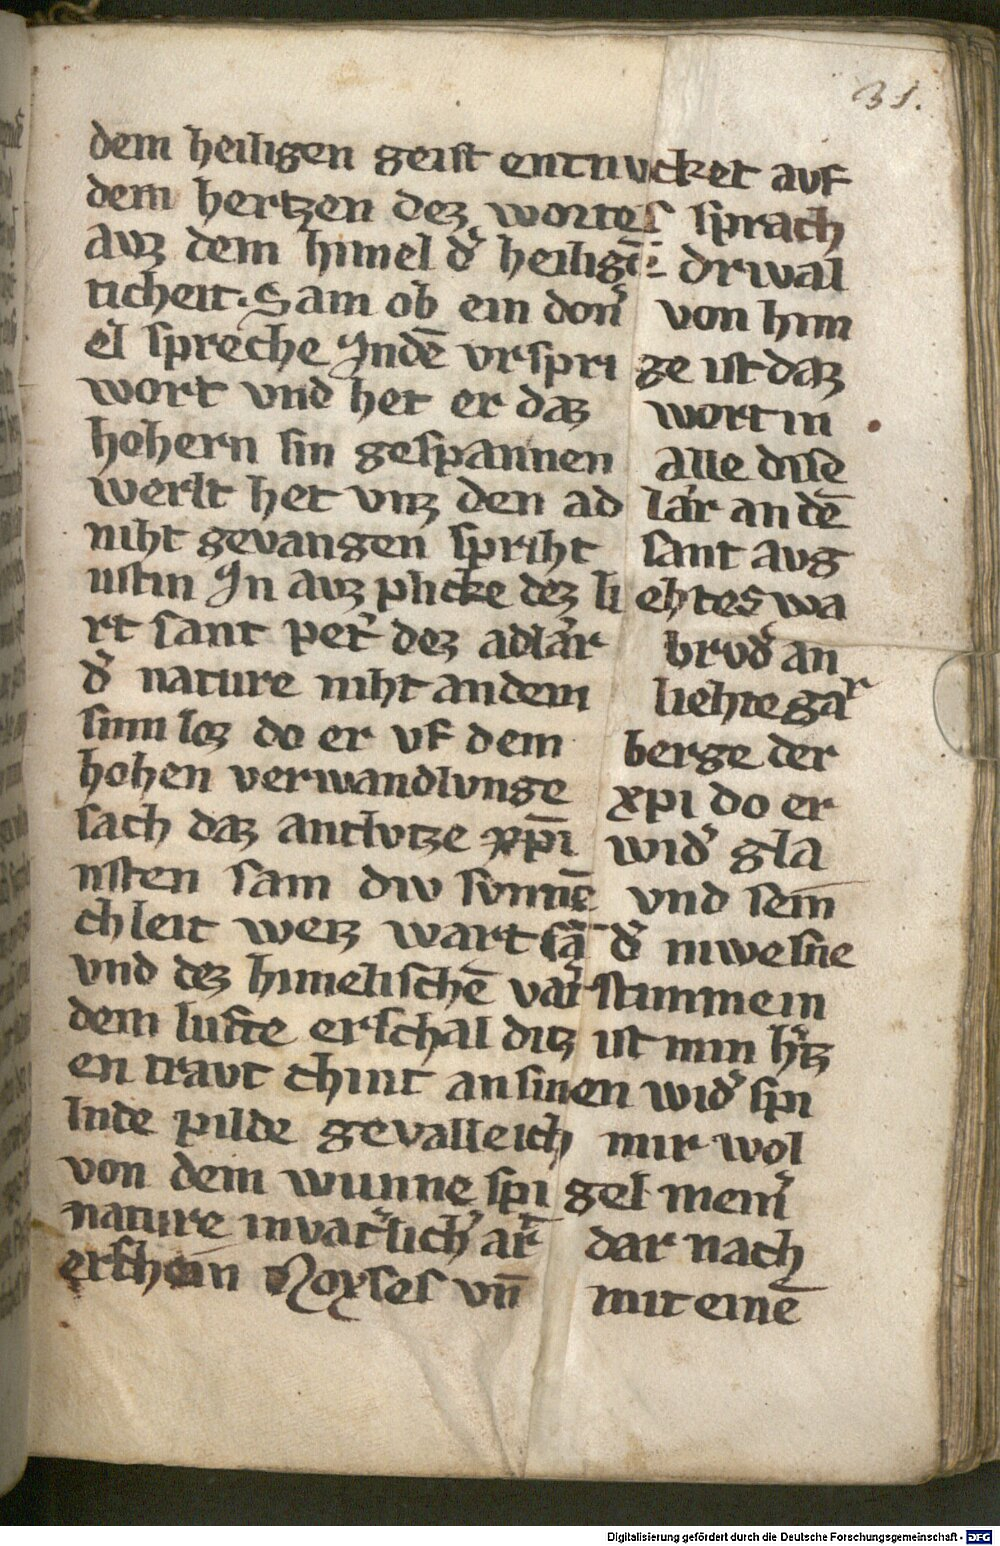 31.
dem heiligen geist entnucket auf
dem hertzen dez wortes sprach
auz dem himel d͛ heilige͞ driual
ticheit. Sam ob ein don͛ von him
el spreche Inde͞ vrspri ge ist daz
wort vnd het er daz wort in
hohern sin gespannen alle dise
werlt het vnz den ad lar an de͞
niht gevangen spriht sant avg
ustin In auz plicke dez li ehtes wa
rt sant pet͛ dez adlar brvd͛ an
d͛ nature niht an dem liehte gar
sinn loz do er vf dem berge der
hohen verwandlvnge xpi do er
sach daz antlvtze xp͞i wid͛ gla
nsten sam div svnne͞ vnd sein
chleit weiz wart sa͞ d͛ niwe sne
vnd dez himelische͞ vat͛ stimme in
dem lufte erschal ditz ist min h͛tz
en travt chint an sinen wid͛ spi
lnde pilde gevalle ich mir wol
von dem wunne spi gel mein͛
nature in vat͛lich͛ art dar nach
erschein Moyses vn͞ mit eine͞
Digitalisierung gefördert durch die Deutsche Forschungsgemeinschaft - DFG